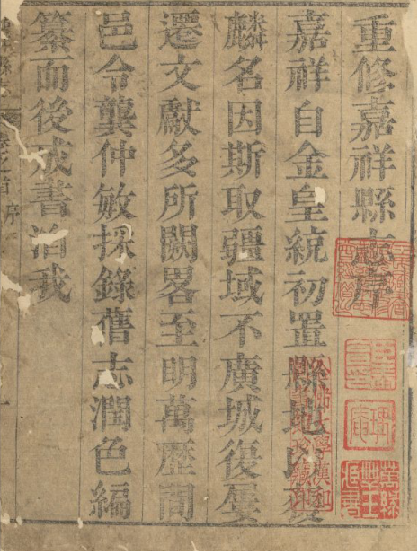 重修嘉祥縣志序
嘉祥自金皇統初置縣地以獲
麟名因斯取疆域不廣城復屢
遷文獻多所闕畧至明萬歷間
邑令龔仲敏採錄舊志潤色編
纂而後成書洎我
序